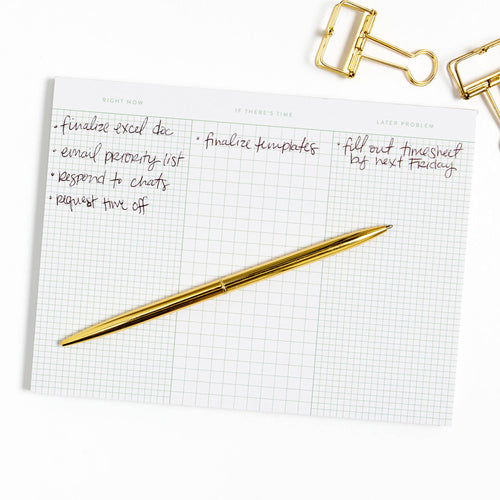 RIGHT NOW
IF THERE'S TIME
LATER PROBLEM
• finalize excel doc
• email priority list
• respond to chats
• request time off
• finalize templates
• fill out timesheet
by next Friday